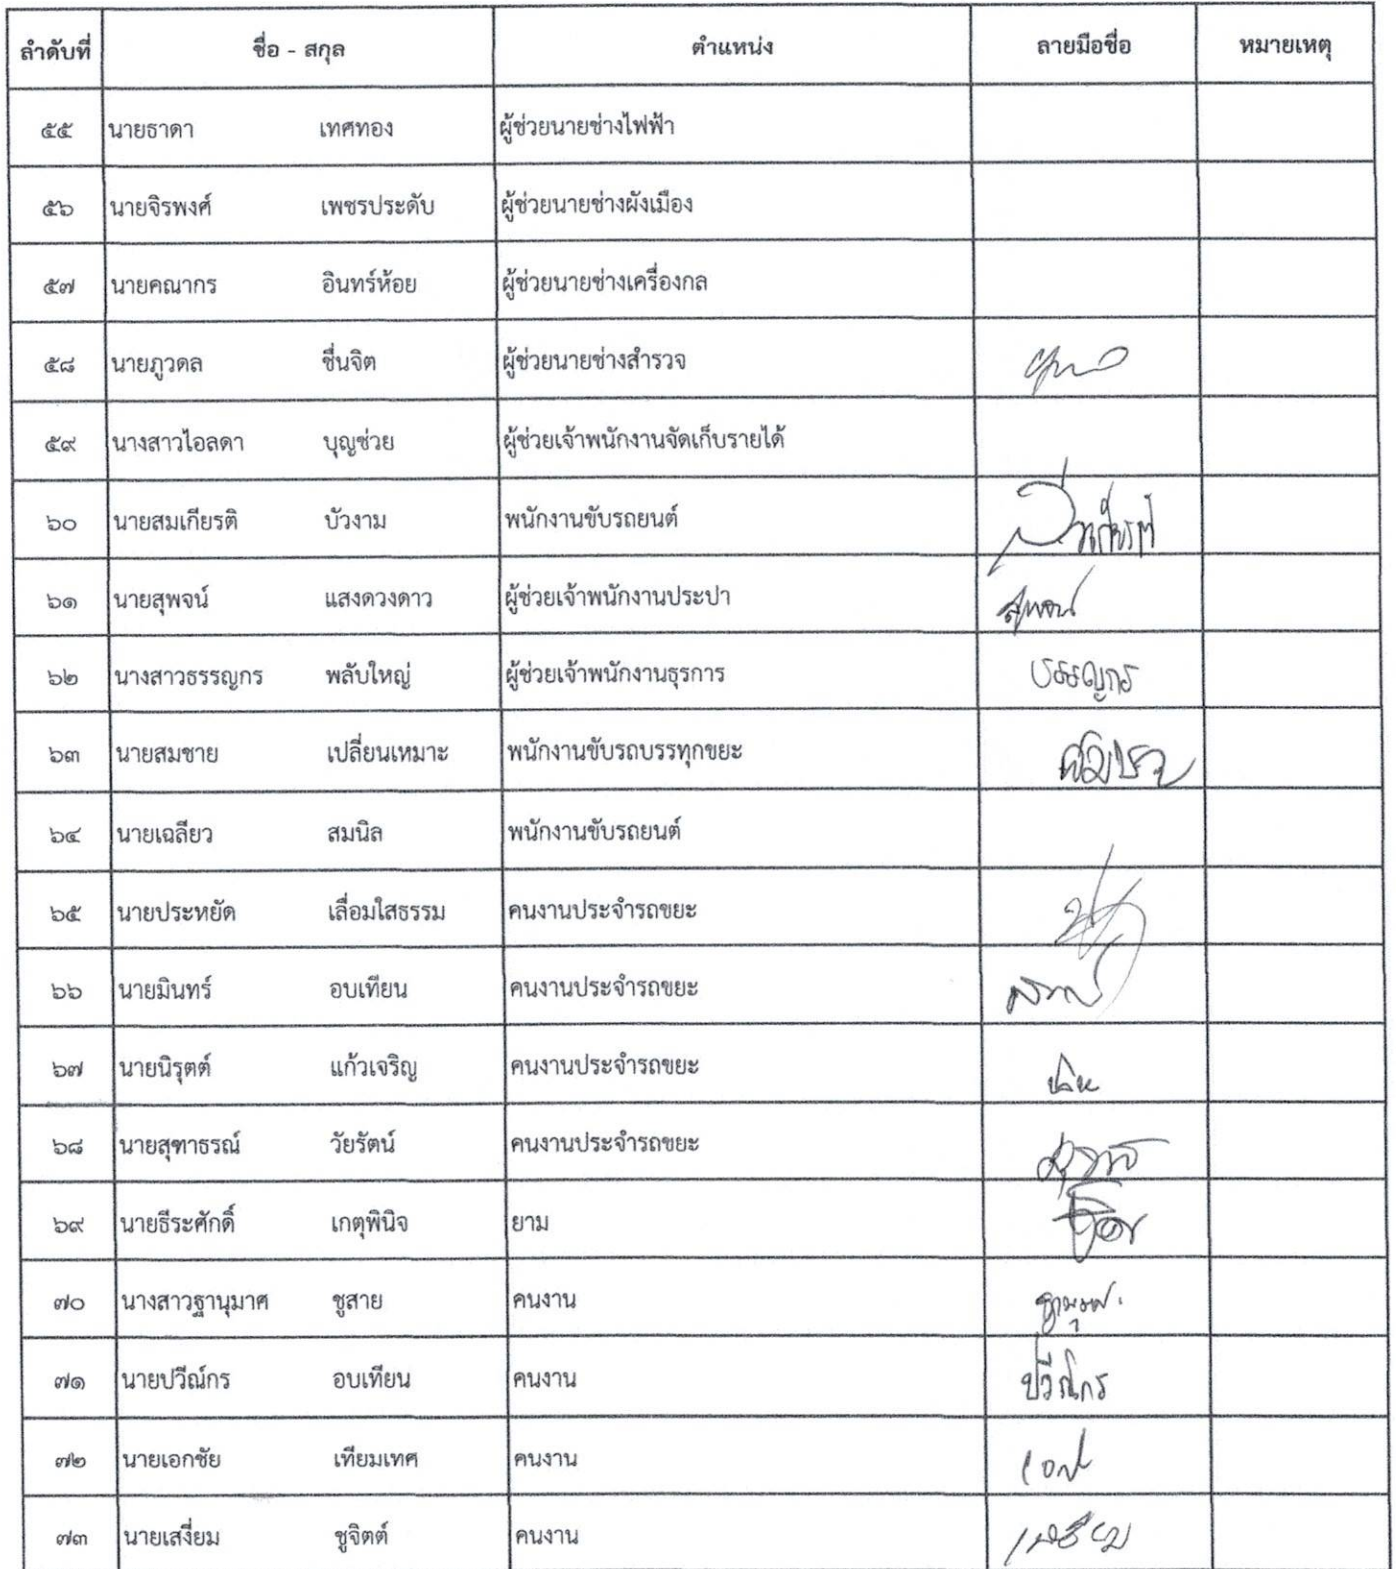 ลำดับที่ ชื่อ - สกุล ตำแหน่ง ลายมือชื่อ หมายเหตุ
๕๕ นายธาดา เทศทอง ผู้ช่วยนายช่างไฟฟ้า
๕๖ นายจิรพงศ์ เพชรประดับ ผู้ช่วยนายช่างผังเมือง
๕๗ นายคณากร อินทร์ห้อย ผู้ช่วยนายช่างเครื่องกล
๕๘ นายภูวดล ชื่นจิต ผู้ช่วยนายช่างสำรวจ
๕๙ นางสาวไอลดา บุญช่วย ผู้ช่วยเจ้าพนักงานจัดเก็บรายได้
๖๐ นายสมเกียรติ บัวงาม พนักงานขับรถยนต์ สมเกียรติ
๖๑ นายสุพจน์ แสงดวงดาว ผู้ช่วยเจ้าพนักงานประปา สุพจน์
๖๒ นางสาวธรรญกร พลับใหญ่ ผู้ช่วยเจ้าพนักงานธุรการ ธรรญกร
๖๓ นายสมชาย เปลี่ยนเหมาะ พนักงานขับรถบรรทุกขยะ สมชาย
๖๔ นายเฉลียว สมนิล พนักงานขับรถยนต์
๖๕ นายประหยัด เลื่อมใสธรรม คนงานประจำรถขยะ
๖๖ นายมินทร์ อบเทียน คนงานประจำรถขยะ
๖๗ นายนิรุตต์ แก้วเจริญ คนงานประจำรถขยะ
๖๘ นายสุฑาธรณ์ วัยรัตน์ คนงานประจำรถขยะ
๖๙ นายธีระศักดิ์ เกตุพินิจ ยาม
๗๐ นางสาวฐานุมาศ ชูสาย คนงาน ฐานุมาศ
๗๑ นายปวีณ์กร อบเทียน คนงาน ปวีณ์กร
๗๒ นายเอกชัย เทียมเทศ คนงาน
๗๓ นายเสงี่ยม ชูจิตต์ คนงาน